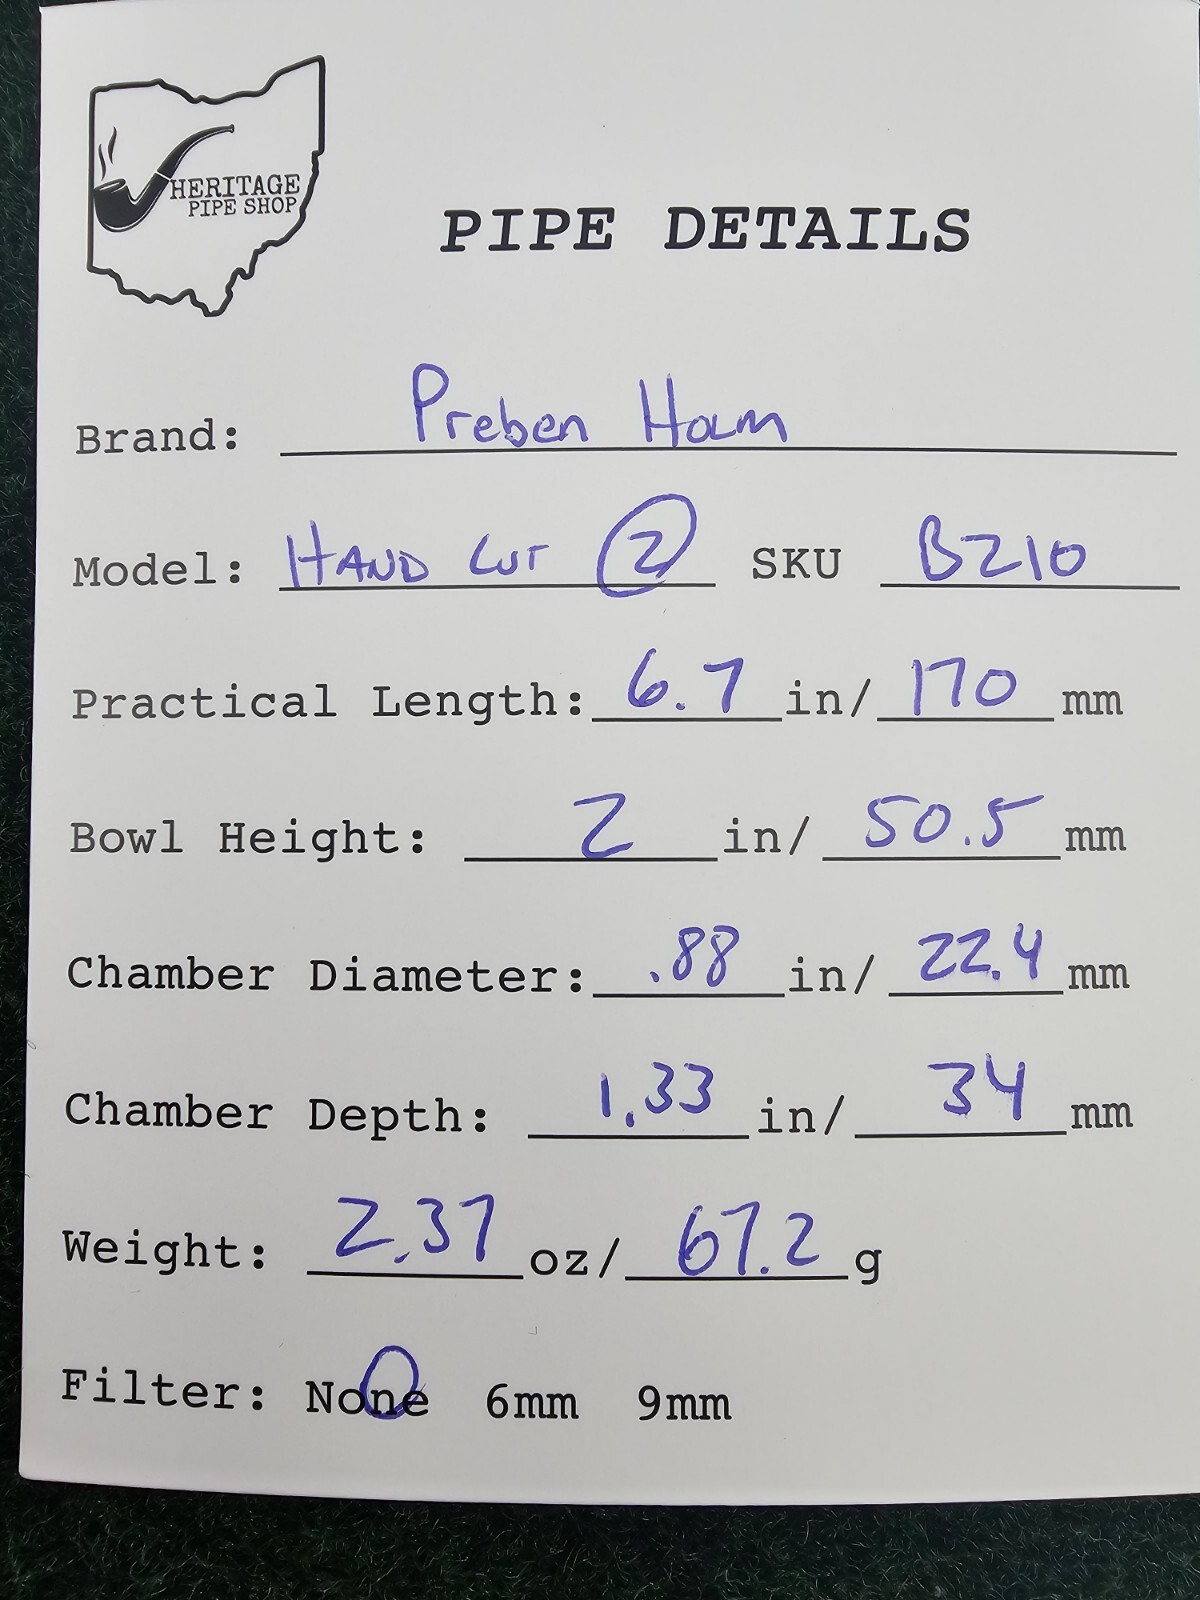 HERITAGE
PIPE SHOP
PIPE DETAILS
Brand: Preben Holm
Model: HAND CUT 2 SKU B210
Practical Length: 6.7 in/ 170 mm
Bowl Height: 2 in/ 50.5 mm
Chamber Diameter: .88 in/ 22.4 mm
Chamber Depth: 1.33 in/ 34 mm
Weight: 2.37 oz/ 67.2 g
Filter: None 6mm 9mm